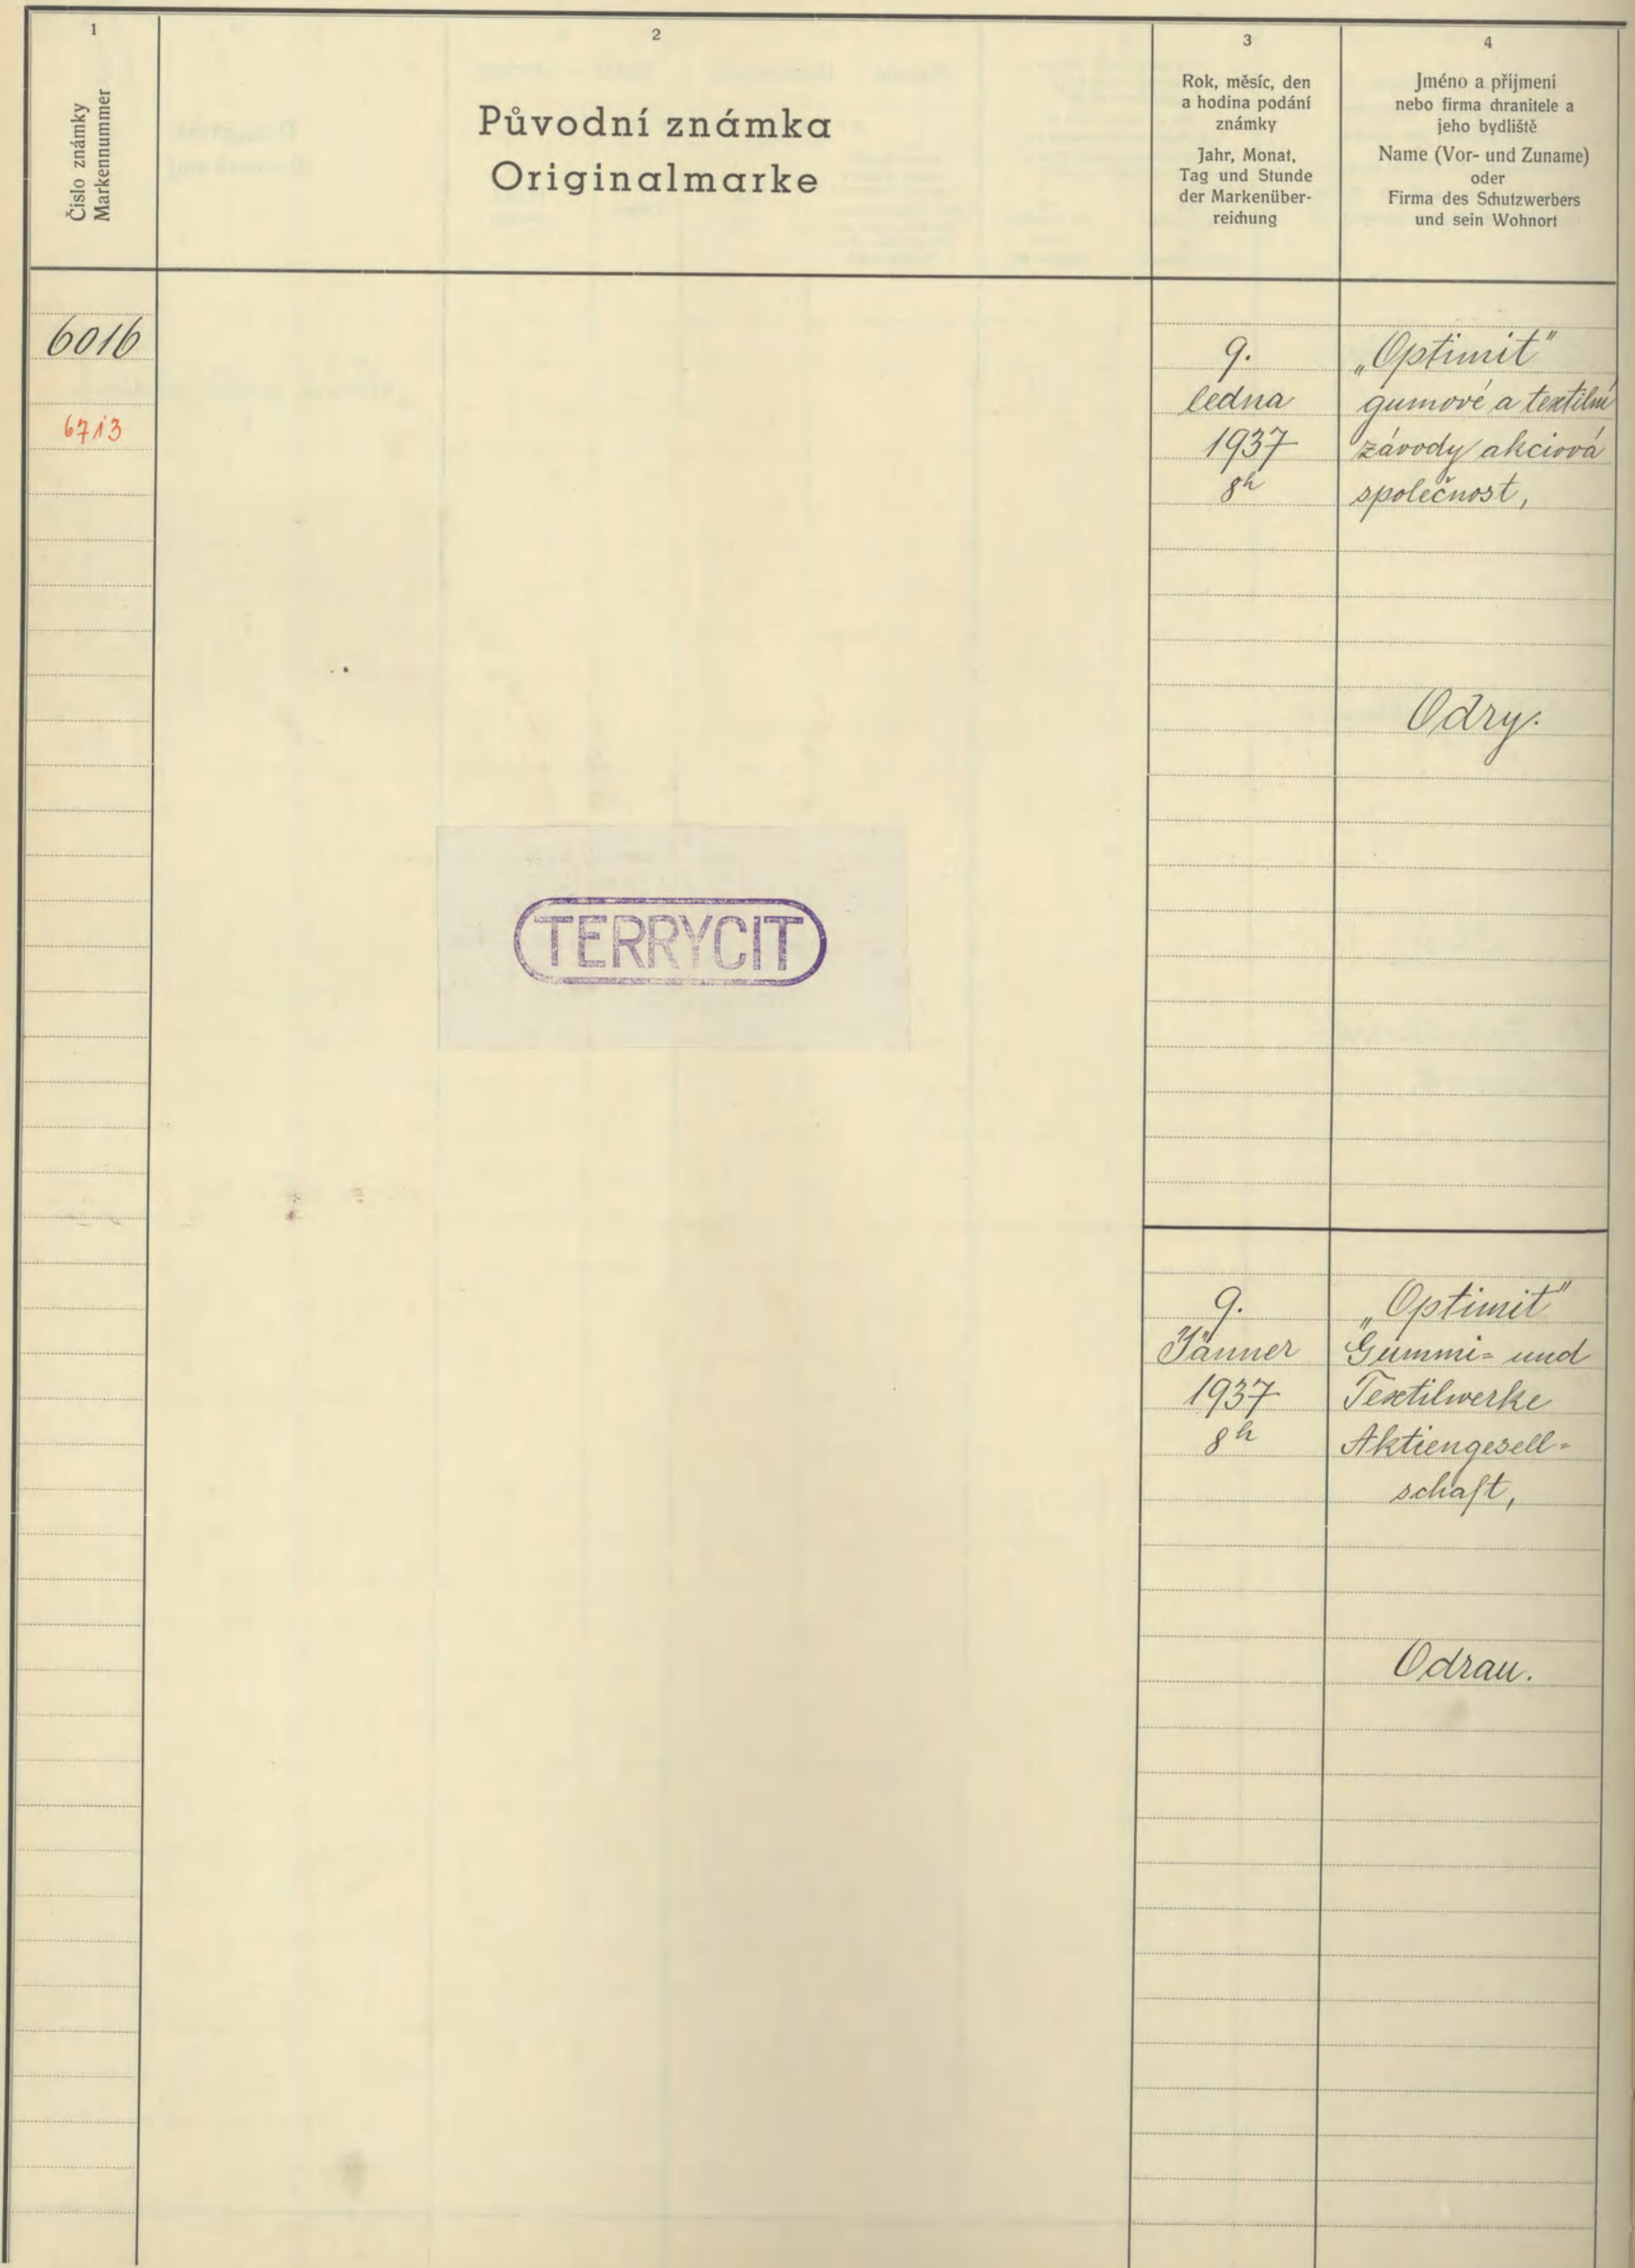 1
Číslo známky
Markennummer
2
Původní známka
Originalmarke
3
Rok, měsíc, den
a hodina podání
známky
Jahr, Monat,
Tag und Stunde
der Markenüber-
reichung
4
Jméno a příjmení
nebo firma chranitele a
jeho bydliště
Name (Vor- und Zuname)
oder
Firma des Schutzwerbers
und sein Wohnort
6016
6713
TERRYCIT
9.
ledna
1937
8h
„Optimit"
gumové a textilní
závody akciová
společnost,
Odry.
9.
Jänner
1937
8h
„Optimit"
Gummi= und
Textilwerke
Aktiengesell=
schaft,
Odrau.